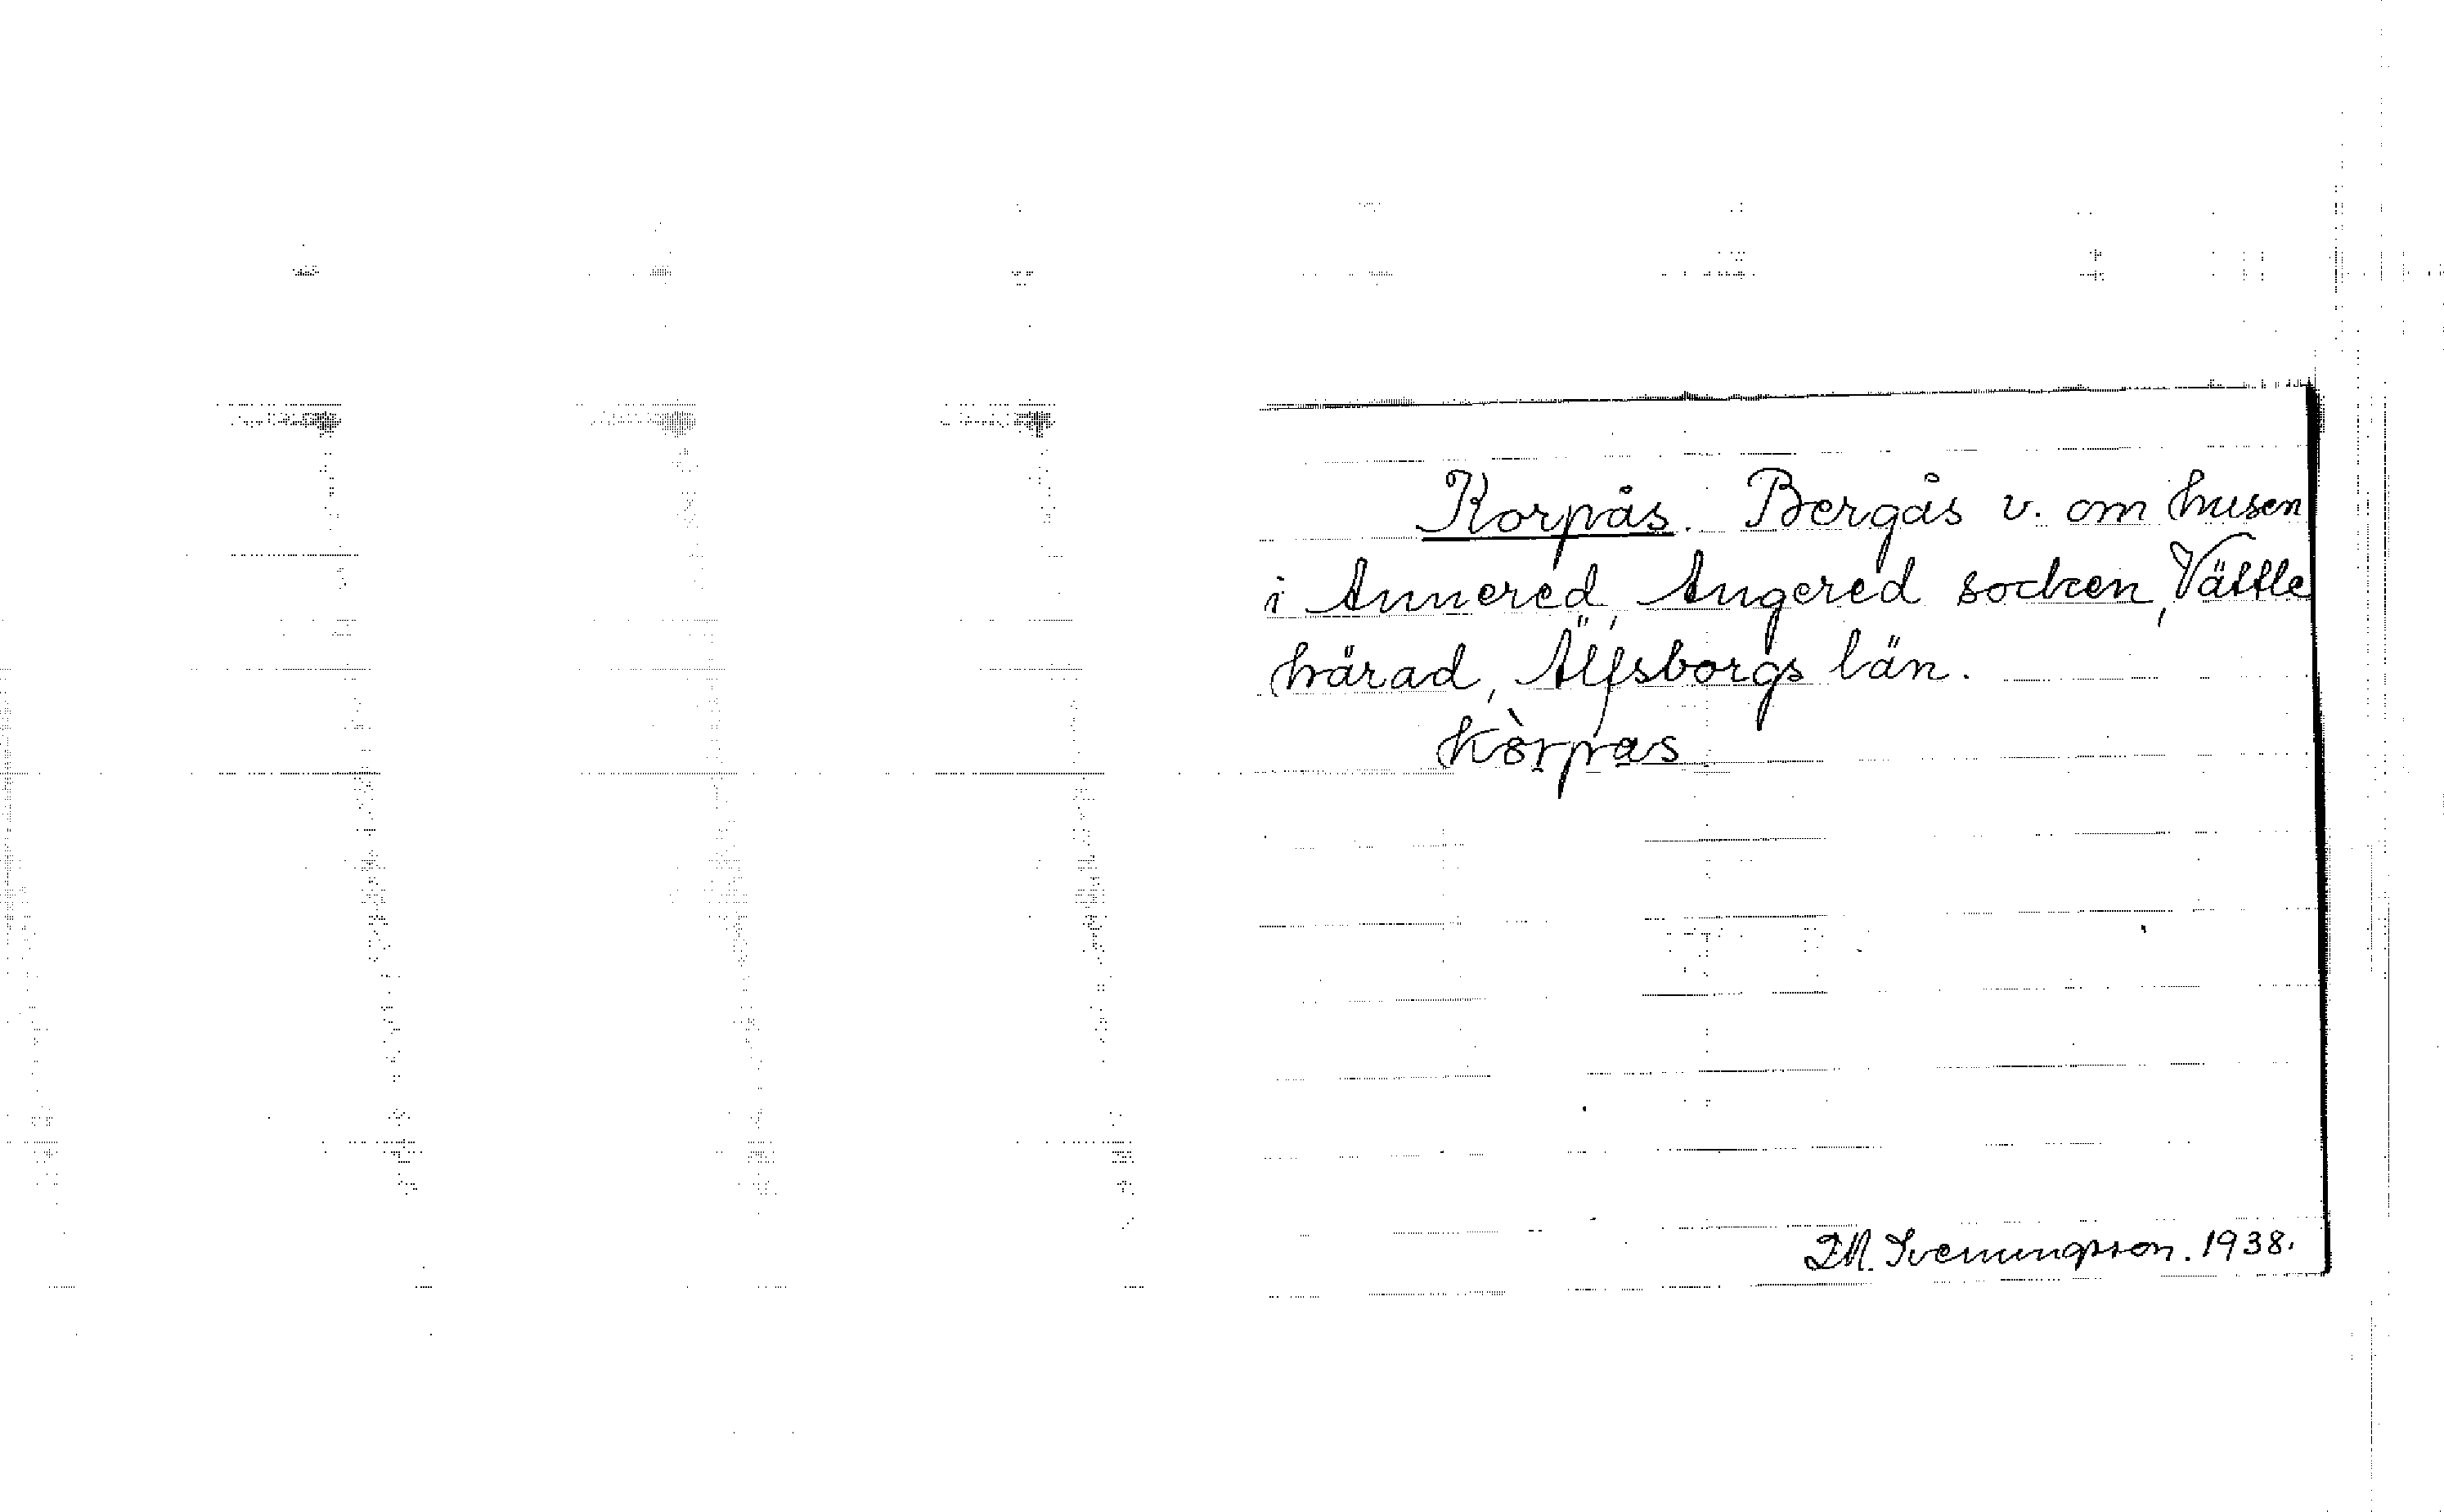 Korpås. Bergås v. om husen
i Annered, Angered socken, Vättle
härad, Älfsborgs län.
Kòrpas
I.M. Svenungsson. 1938.